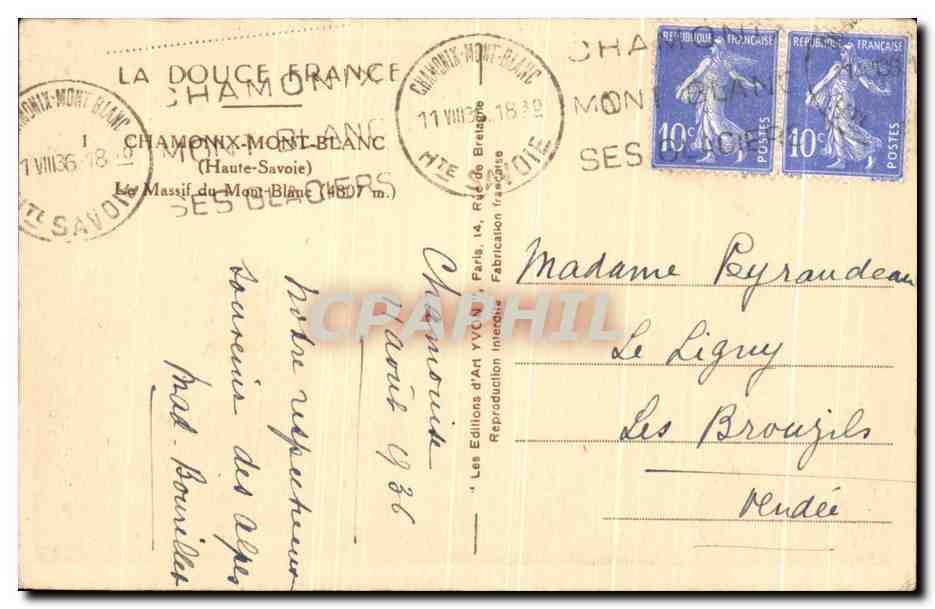 LA DOUCE FRANCE
1
CHAMONIX-MONT-BLANC
(Haute-Savoie)
Le Massif du Mont-Blanc (4807 m.)
CHAMONIX
MONT BLANC
SES GLACIERS
CHAMONIX-MONT BLANC
HTE SAVOIE
CHAMONIX-MONT-BLANC
11 VIII 36 18
HTE SAVOIE
CHAMONIX
MONT BLANC
SES GLACIERS
REPUBLIQUE FRANÇAISE
10c
POSTES
REPUBLIQUE FRANÇAISE
10c
POSTES
" Les Editions d'Art YVON ", Paris, 14, Rue de Bretagne
Reproduction Interdite Fabrication française
Chamonix
août 1936
Notre respectueux
souvenir des alpes
Mad. Bourilles
Madame Peyraudeau
Le Ligny
Les Brouzils
Vendée
CPAPHIL